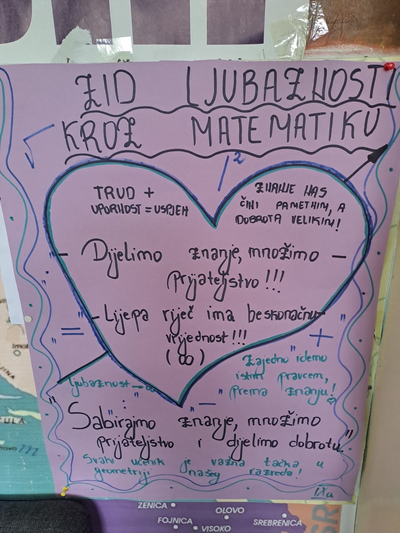 ZID LJUBAZNOSTI
KROZ MATEMATIKU
√
/²
TRUD +
UPORNOST = USPJEH
ZNANJE NAS
ČINI PAMETNIM, A
DOBROTA VELIKIM!
– Dijelimo znanje, množimo –
prijateljstvo !!!
– Lijepa riječ ima beskonačnu
vrijednost !!!
(∞)
=
+
Ljubaznost → ∞
Zajedno idemo
istim pravcem,
prema znanju!
"Sabirajmo znanje, množimo
prijateljstvo i dijelimo dobrotu."
Svaki učenik je važna tačka u
geometriji našeg razreda!
ZENICA
OLOVO
FOJNICA
VISOKO
SREBRENICA